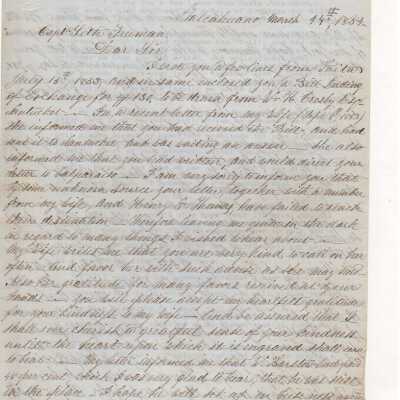 Talcahuano March 14th, 1854
Capt Seth Freeman
Dear Sir
I sent you a few lines from
July 15th 1853, and in same inclosed you a Bill
of Exchange for $ 130, to be drawn from H Crosby Esq
Nantucket – In a recent letter from my Wife
she informed me that you had received the Bill, and had
sent it to Nantucket, but was waiting an answer – She also
informed me that you had written, and would direct your
letter to Valparaiso – I am very sorry to inform you that
by some unknown source your letter, together with a number
from my Wife, and Henry have failed to reach
their destination – therefore leaving me quite in the dark
in regard to many things I wished to hear about –
My Wife writes me that you are very kind, to call on her
often and favor her with such advice as she may need
gratitude for many favors received at your
hands – you will please accept my heartfelt gratitude
for your kindness to my wife – and be assured that I
shall ever cherish a grateful sense of your kindness
until the heart upon which it is engraved shall cease
to bear – My letter informed me that
40 per cent which I was very glad to hear, that he was still
in the place – I hope he will